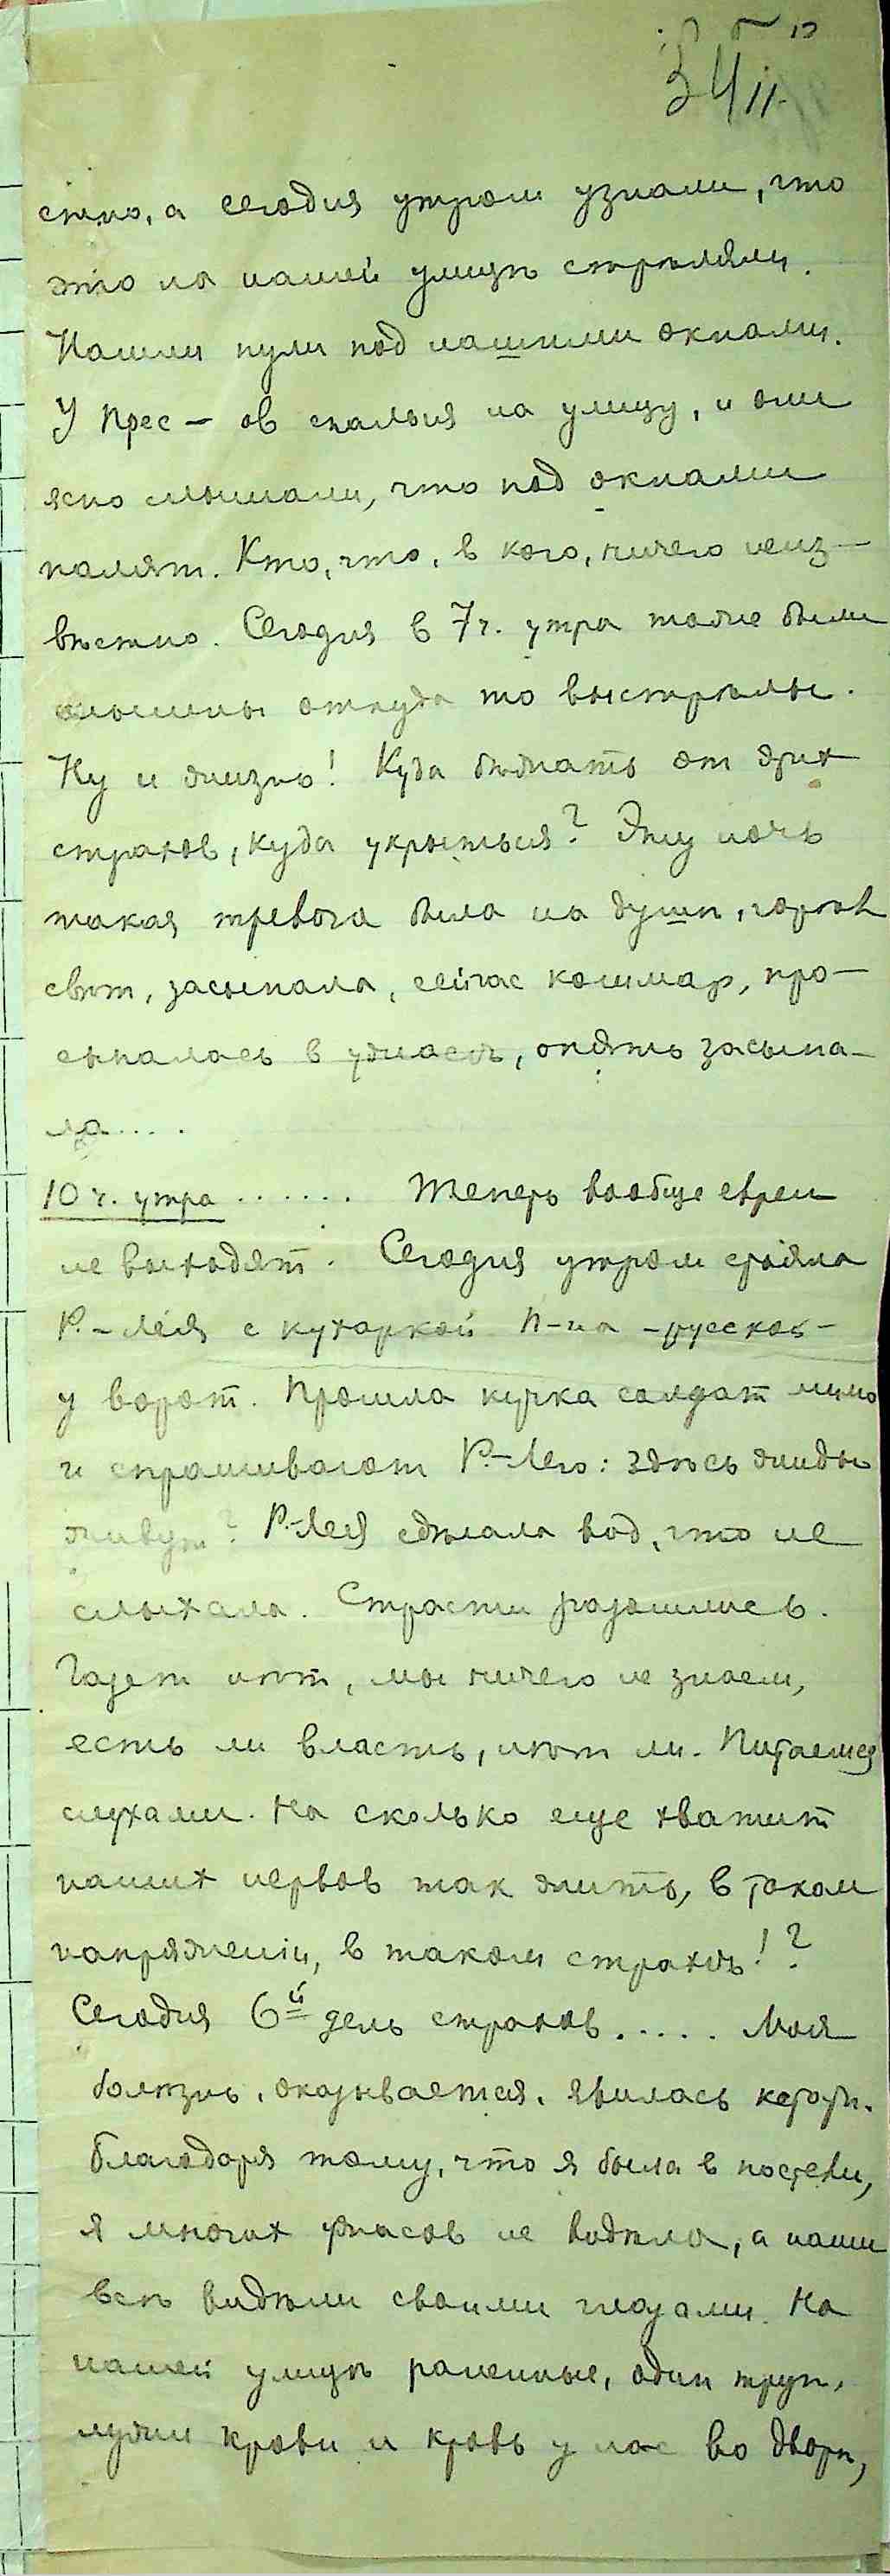 34 11.
стно, а сегодня утром узнали, что
это на нашей улицѣ стрѣляли.
Нашли пули под нашими окнами.
У Прес – ов спальня на улицу, и они
ясно слышали, что под окнами
палят. Кто, что, в кого, ничего неиз-
вѣстно. Сегодня в 7 ч. утра тоже были
слышны откуда то выстрѣлы.
Ну и жизнь! Куда бѣжать от этих
страхов, куда укрыться? Эту ночь
такая тревога была на душѣ, горѣл
свѣт, засыпала, сейчас кошмар, про-
сыпалась в ужасѣ, опять засыпа-
ла....
10 ч. утра ...... Теперь вообще евреи
не выходят. Сегодня утром стояла
Р.-Лея с кухаркой П-на – русской –
у ворот. Прошла кучка солдат мимо
и спрашивают Р.-Лею: здѣсь жиды
живут? Р.-Лея сдѣлала вид, что не
слыхала. Страсти разошлись.
Газет нѣт, мы ничего не знаем,
есть ли власть, нѣт ли. Питаемся
слухами. На сколько еще хватит
наших нервов так жить, в таком
напряженіи, в таком страхѣ!?
Сегодня 6й день страхов..... Моя
болѣзнь, оказывается, явилась кстати.
Благодаря тому, что я была в постели,
я многих ужасов не видѣла, а наши
всѣ видѣли своими глазами. На
нашей улицѣ раненные, один труп,
лужи крови и кровь у нас во дворѣ,